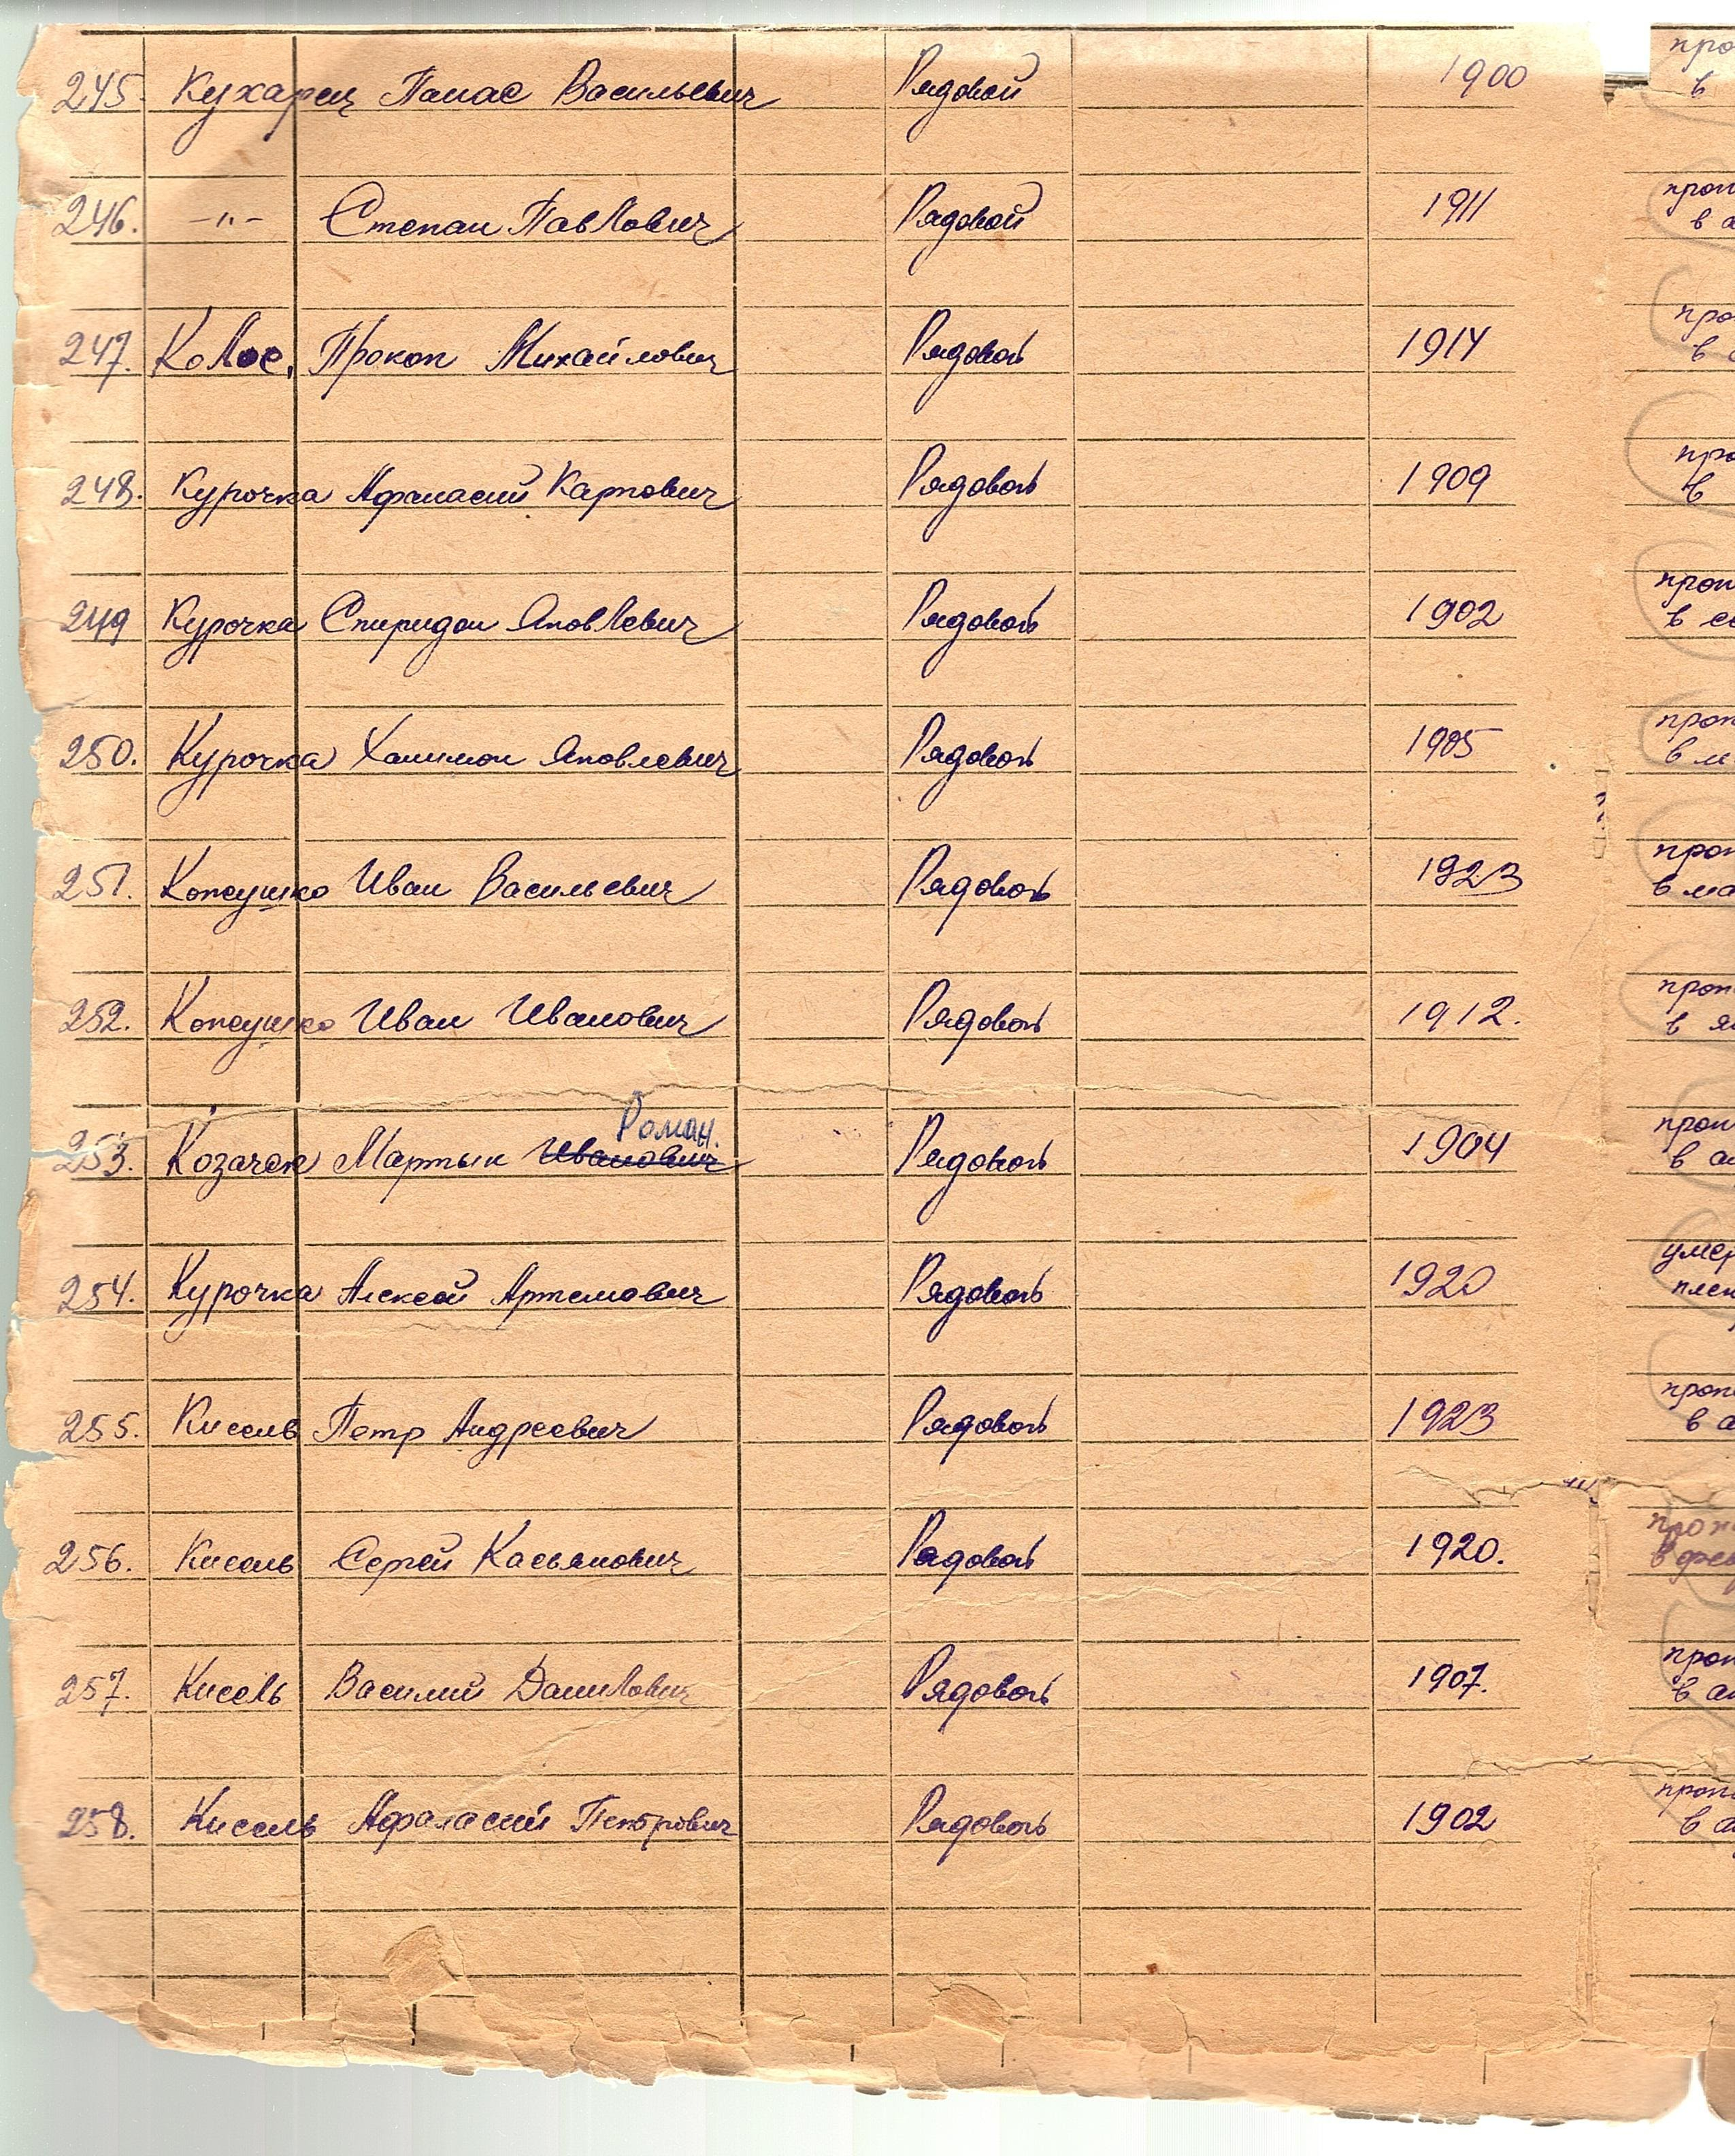 245. Кухарец Панас Васильевич Рядовой 1900
246. -"- Степан Павлович Рядовой 1911
247. Колос, Прокоп Михайлович Рядовой 1914
248. Курочка Афанасий Карпович Рядовой 1909
249 Курочка Спиридон Яковлевич Рядовой 1902
250. Курочка Халимон Яковлевич Рядовой 1905
251. Иван Васильевич Рядовой 1923
252. Иван Иванович Рядовой 1912.
Роман.
253. Козачек Мартын Иванович Рядовой 1904
254. Курочка Алексей Артемович Рядовой 1920
255. Кисель Петр Андреевич Рядовой 1923
256. Кисель Сергей Касьянович Рядовой 1920.
257. Кисель Василий Данилович Рядовой 1907.
258. Кисель Афанасий Петрович Рядовой 1902